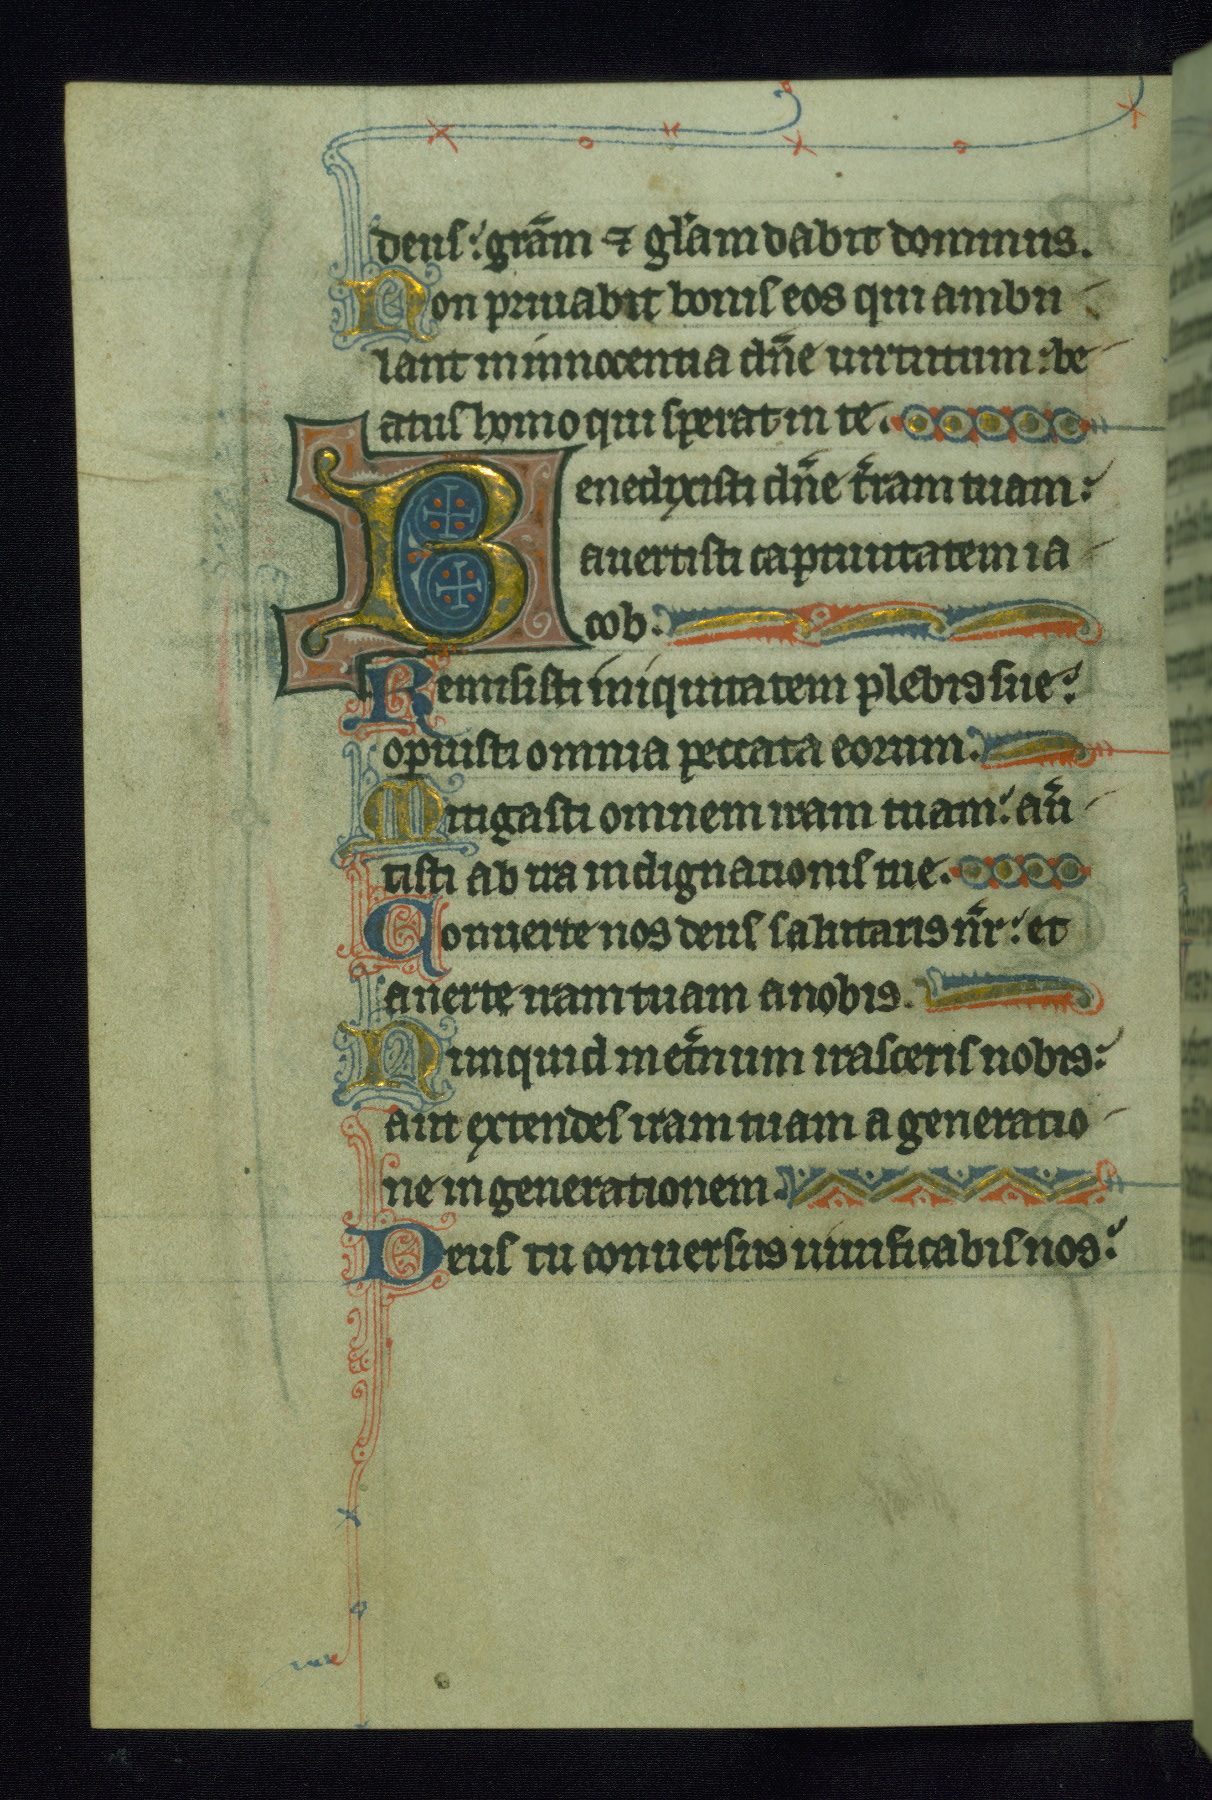 deus: grãm ⁊ gl̃am dabit dominus.
Non priuabit bonis eos qui ambu
lant in innocentia dñe uirtutum: be
atus homo qui sperat in te.
Benedixisti dñe t̃ram tuam:
auertisti captiuitatem ia
cob.
Remisisti iniquitatem plebis sue:
opuisti omnia peccata eorum.
Mitigasti omnem iram tuam: au̾
tisti ab ira indignationis tue.
Conuerte nos deus salutaris nr̃: et
auerte iram tuam a nobis.
Nunquid in et̾num irasceris nobis:
aut extendes iram tuam a generatio
ne in generationem.
Deus tu conuersus uiuificabis nos: